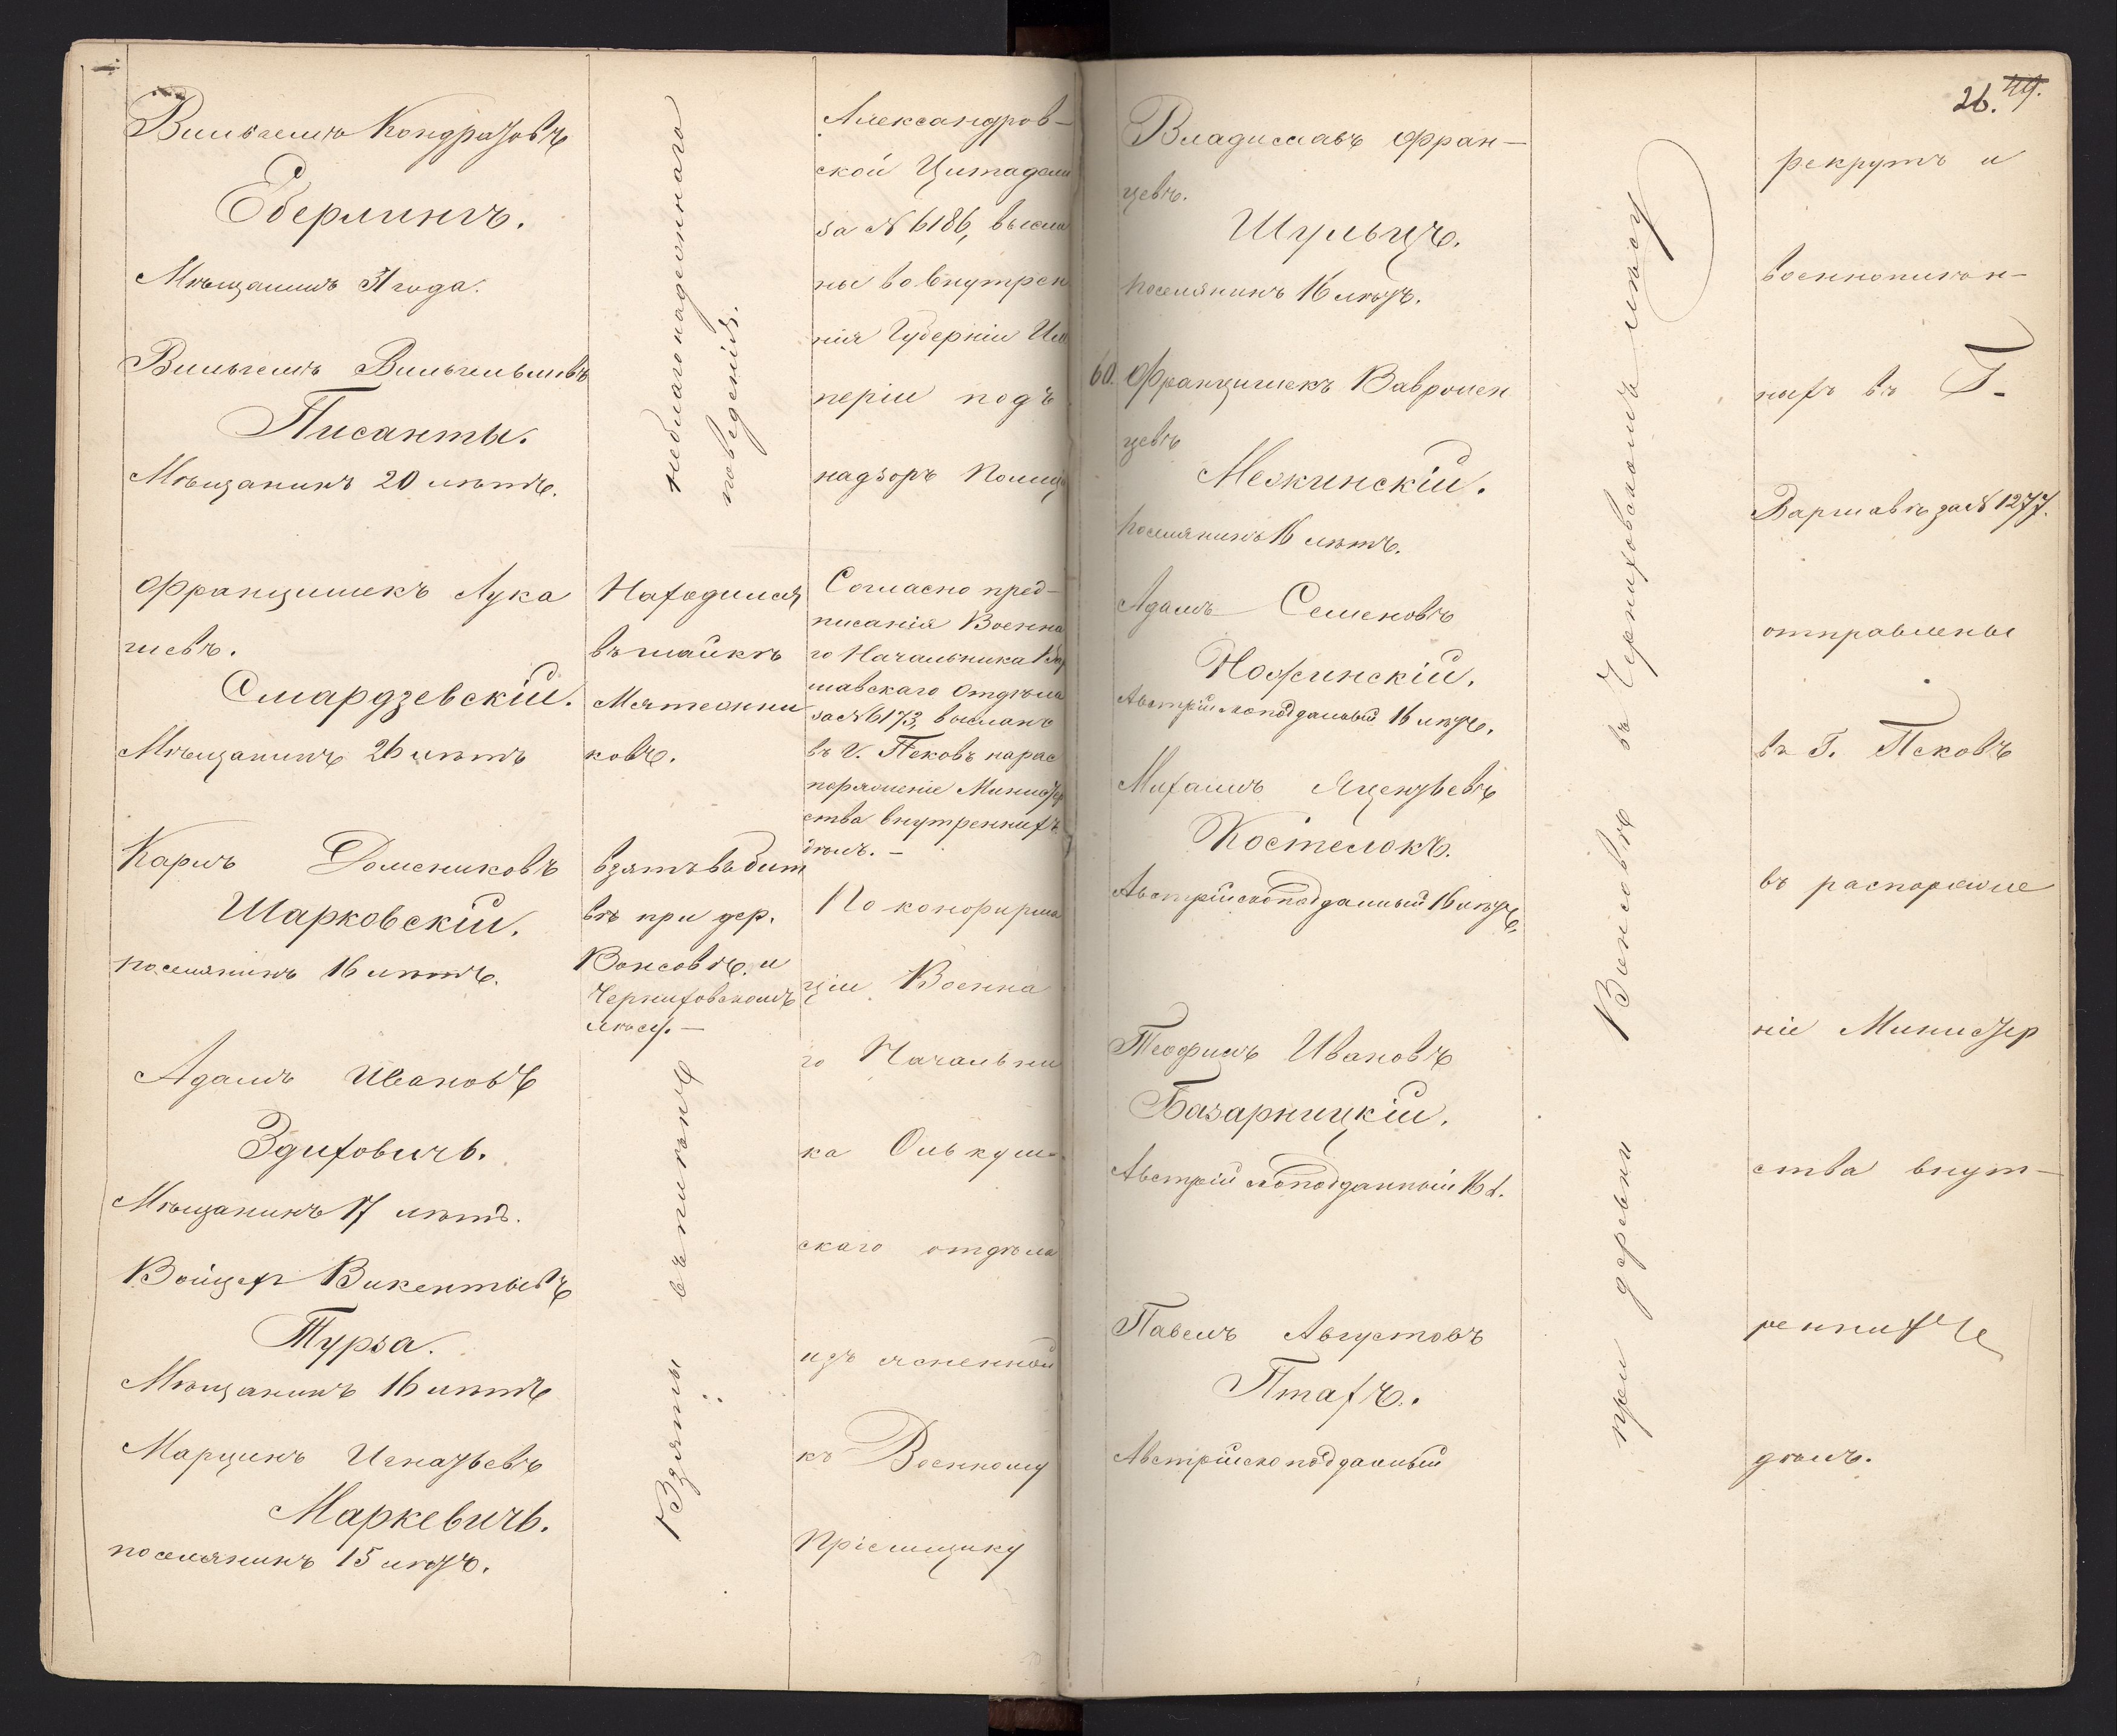 Вильгельмъ Кондратовъ
Еберлингъ.
Мѣщанинъ 31 года.
Вильгельмъ Вильгельмовъ
Писанты.
Мѣщанинъ 20 лѣтъ.
Францишекъ Лука
шевъ.
Смардзевскій.
Мѣщанинъ 26 лѣтъ
Карлъ Домениковъ
Шарковскій.
поселянинъ 16 лѣтъ.
Адамъ Ивановъ
Здиховичъ.
Мѣщанинъ 17 лѣтъ.
Войцех Викентьевъ
Турза.
Мѣщанинъ 16 лѣтъ
Марцинъ Игнатьевъ
Маркевичъ.
поселянинъ 15 лѣтъ.
неблагонадежнаго
поведенія.
Находился
въ шайкѣ
Мятежни
ковъ.
взятъ въ бит
вѣ при дер.
Вонсовѣ и
Чернифовскомъ
лѣсу. —
Взяты въ плѣнъ
Александров-
ской Цитадели
за № 6186, высла
ны во внутрен
нія Губерніи Им
періи подъ
надзоръ Полиціи
Согласно пред-
писанія Военна
го Начальника Вар
шавскаго Отдѣла
за № 6173, высланъ
въ г. Псковъ на рас
поряженіе Министер
ства внутреннихъ
дѣлъ. —
По конфирма
ціи Военна
го Начальни
ка Олькуш-
скаго отдѣла
изъ
къ Военному
Пріемщику
26. 49.
Владиславъ Фран-
цевъ.
Шульцъ.
поселянинъ 16 лѣтъ.
60. Францишекъ Вавржен
цевъ
Межинскій.
поселянинъ 16 лѣтъ.
Адамъ Семеновъ
Ножинскій.
Австрійскоподданый 16 лѣтъ.
Михаилъ Яцентьевъ
Костелокъ.
Австрійскоподданный 16 лѣтъ.
Теофилъ Ивановъ
Базарницкій.
Австрійскоподданный 16 л.
Павелъ Августовъ
Птахъ.
Австрійскоподданный
при деревни Вонсовѣ въ Чернифовскомъ лѣсу
рекрутъ и
военноплѣн-
ныхъ въ Г.
Варшавѣ за № 1277.
отправлены
въ Г. Псковъ
въ распоряже
ніе Министер
ства внут-
реннихъ
дѣлъ.